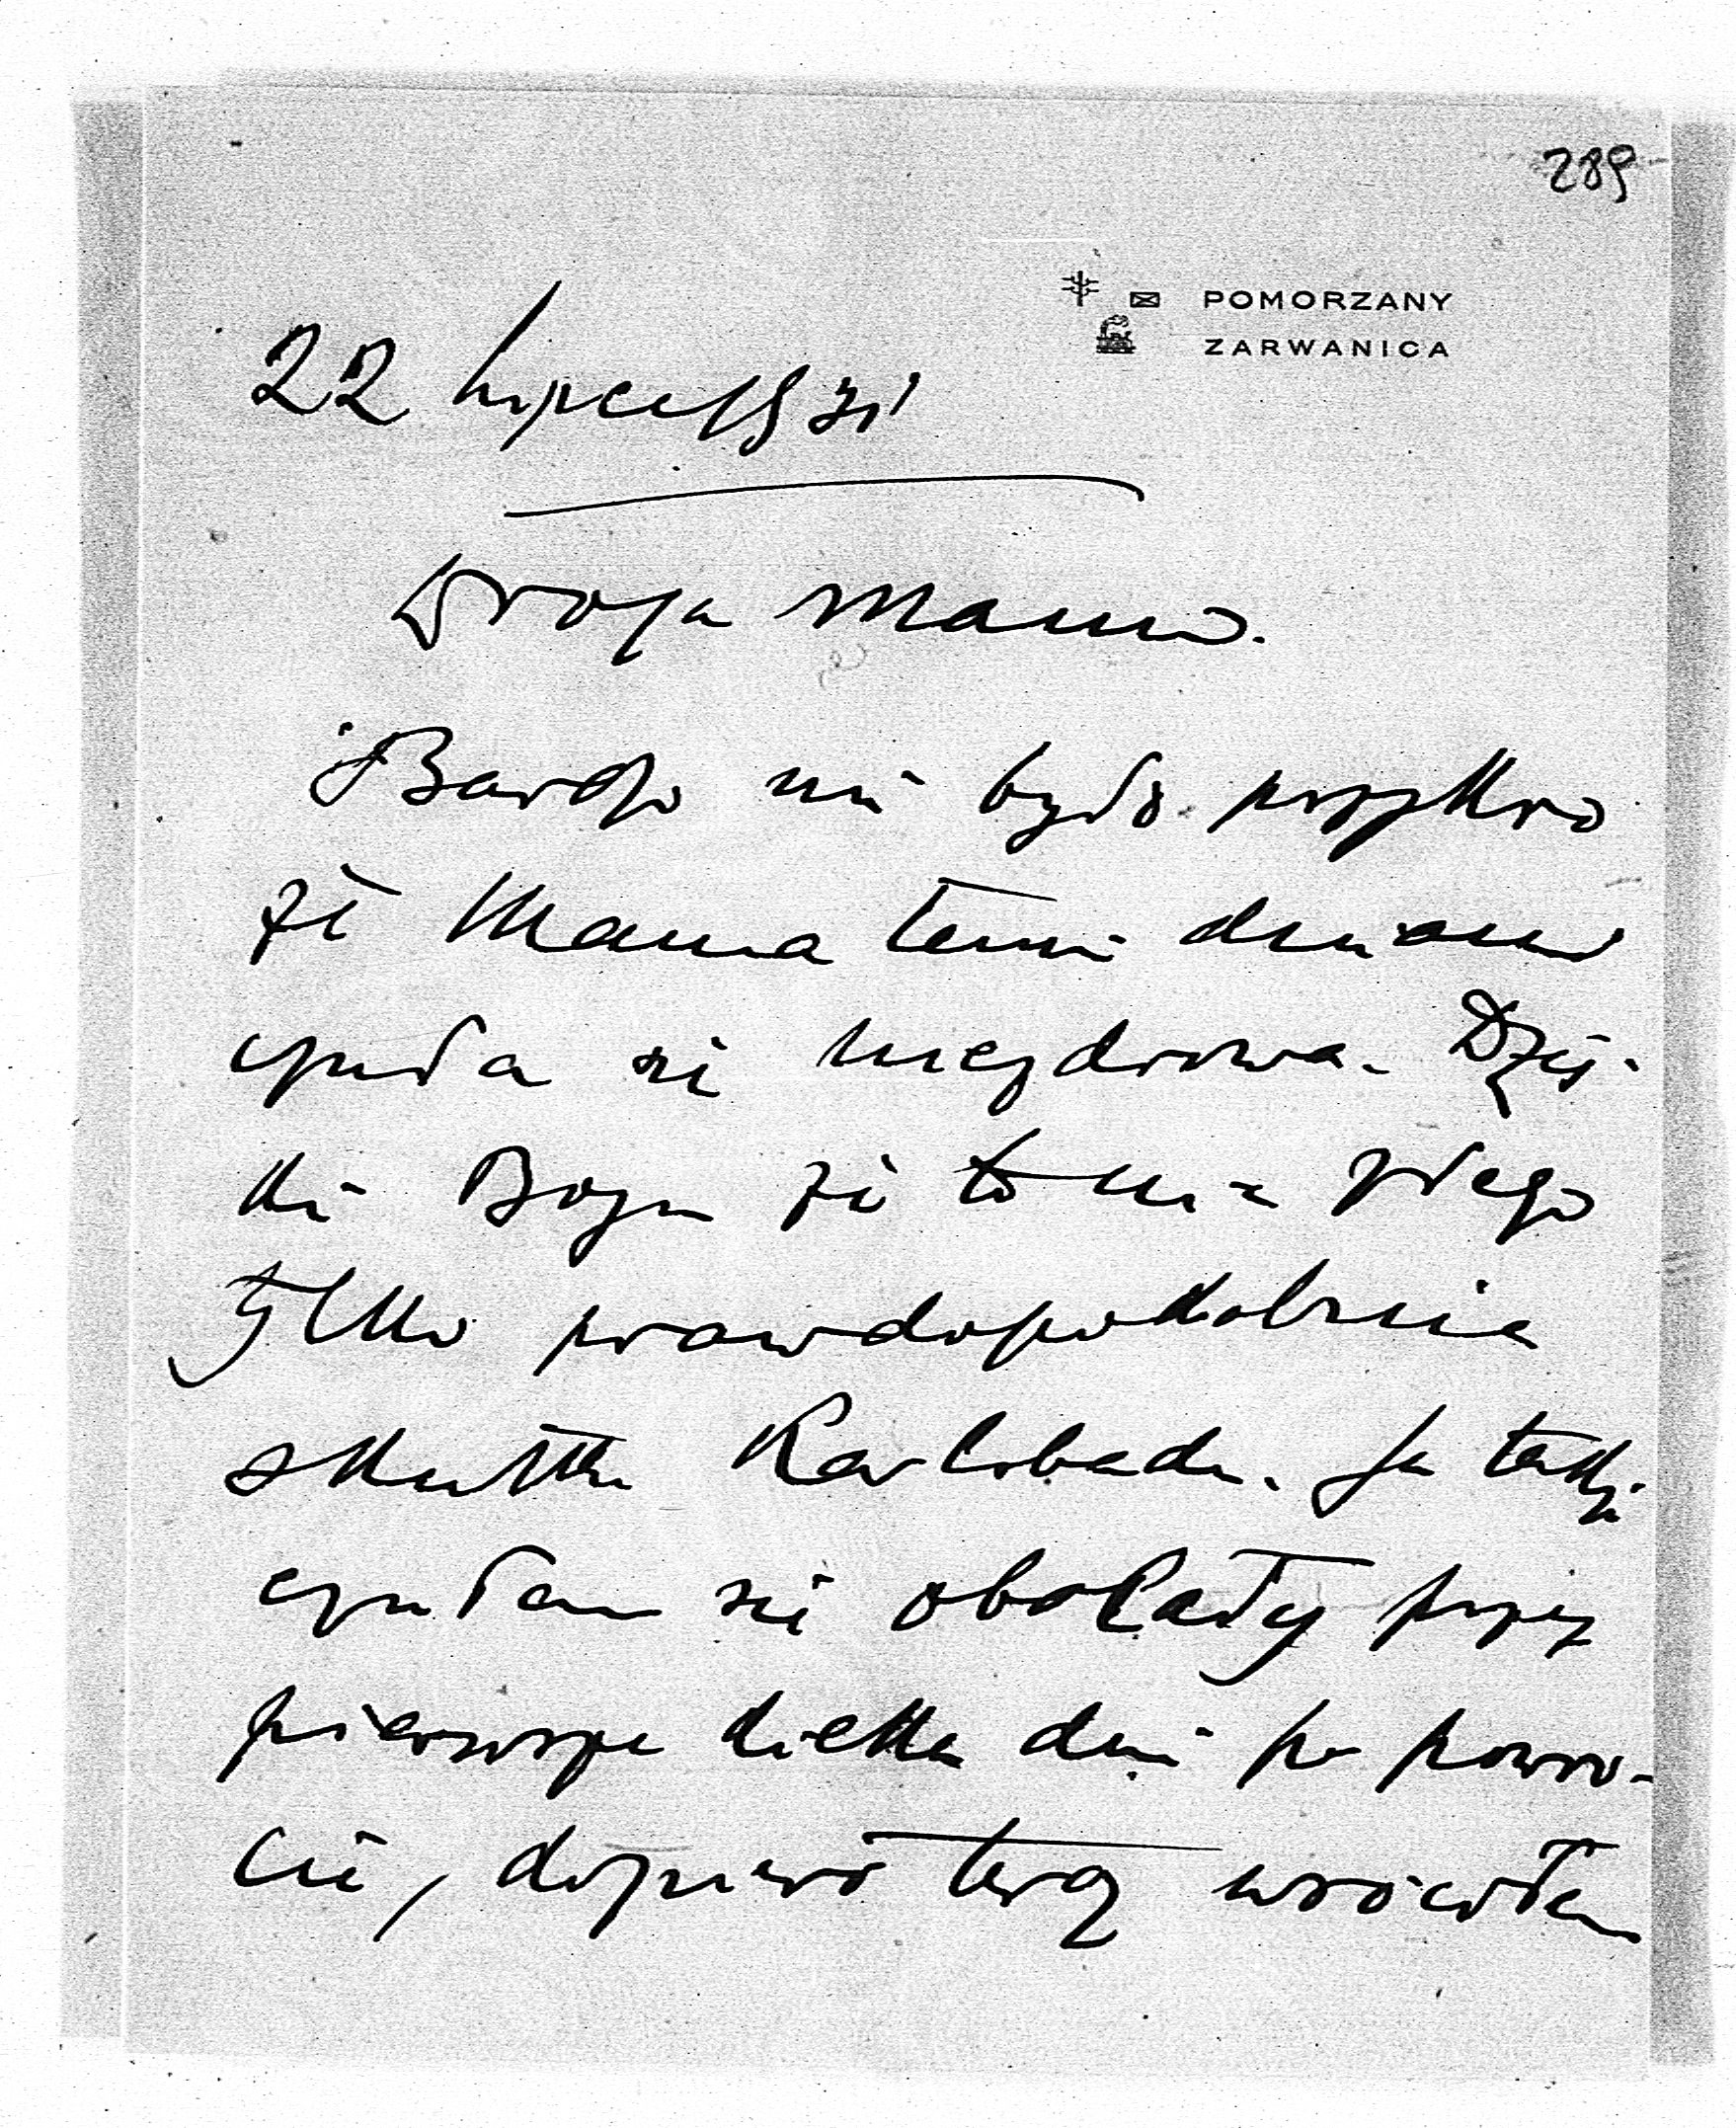 289
POMORZANY
ZARWANICA
22 lipca 1931
Droga Mamo.
Bardzo mi było przykro
że Mama temi dniami
czuła się niezdrowa. Dzię-
ki Bogu że to nic złego
tylko prawdopodobnie
skutki Karlsbadu. Ja także
czułem się obolały przez
pierwsze kilka dni po powro-
cie, dopiero teraz wróciłem